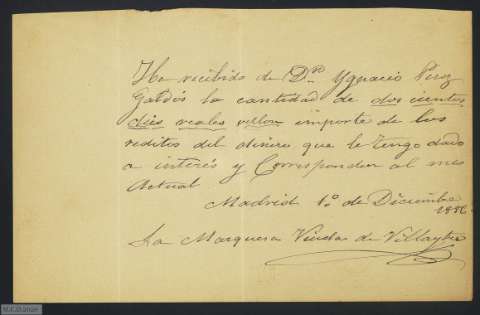 He recibido de Dn Ygnacio Perez
Galdós la cantidad de dos cientos
diés reales vellon importe de los
reditos del dinero que le tengo dado
a interés y Corresponden al mes
Actual
Madrid 1º de Diciembre
La Marquesa Viuda de